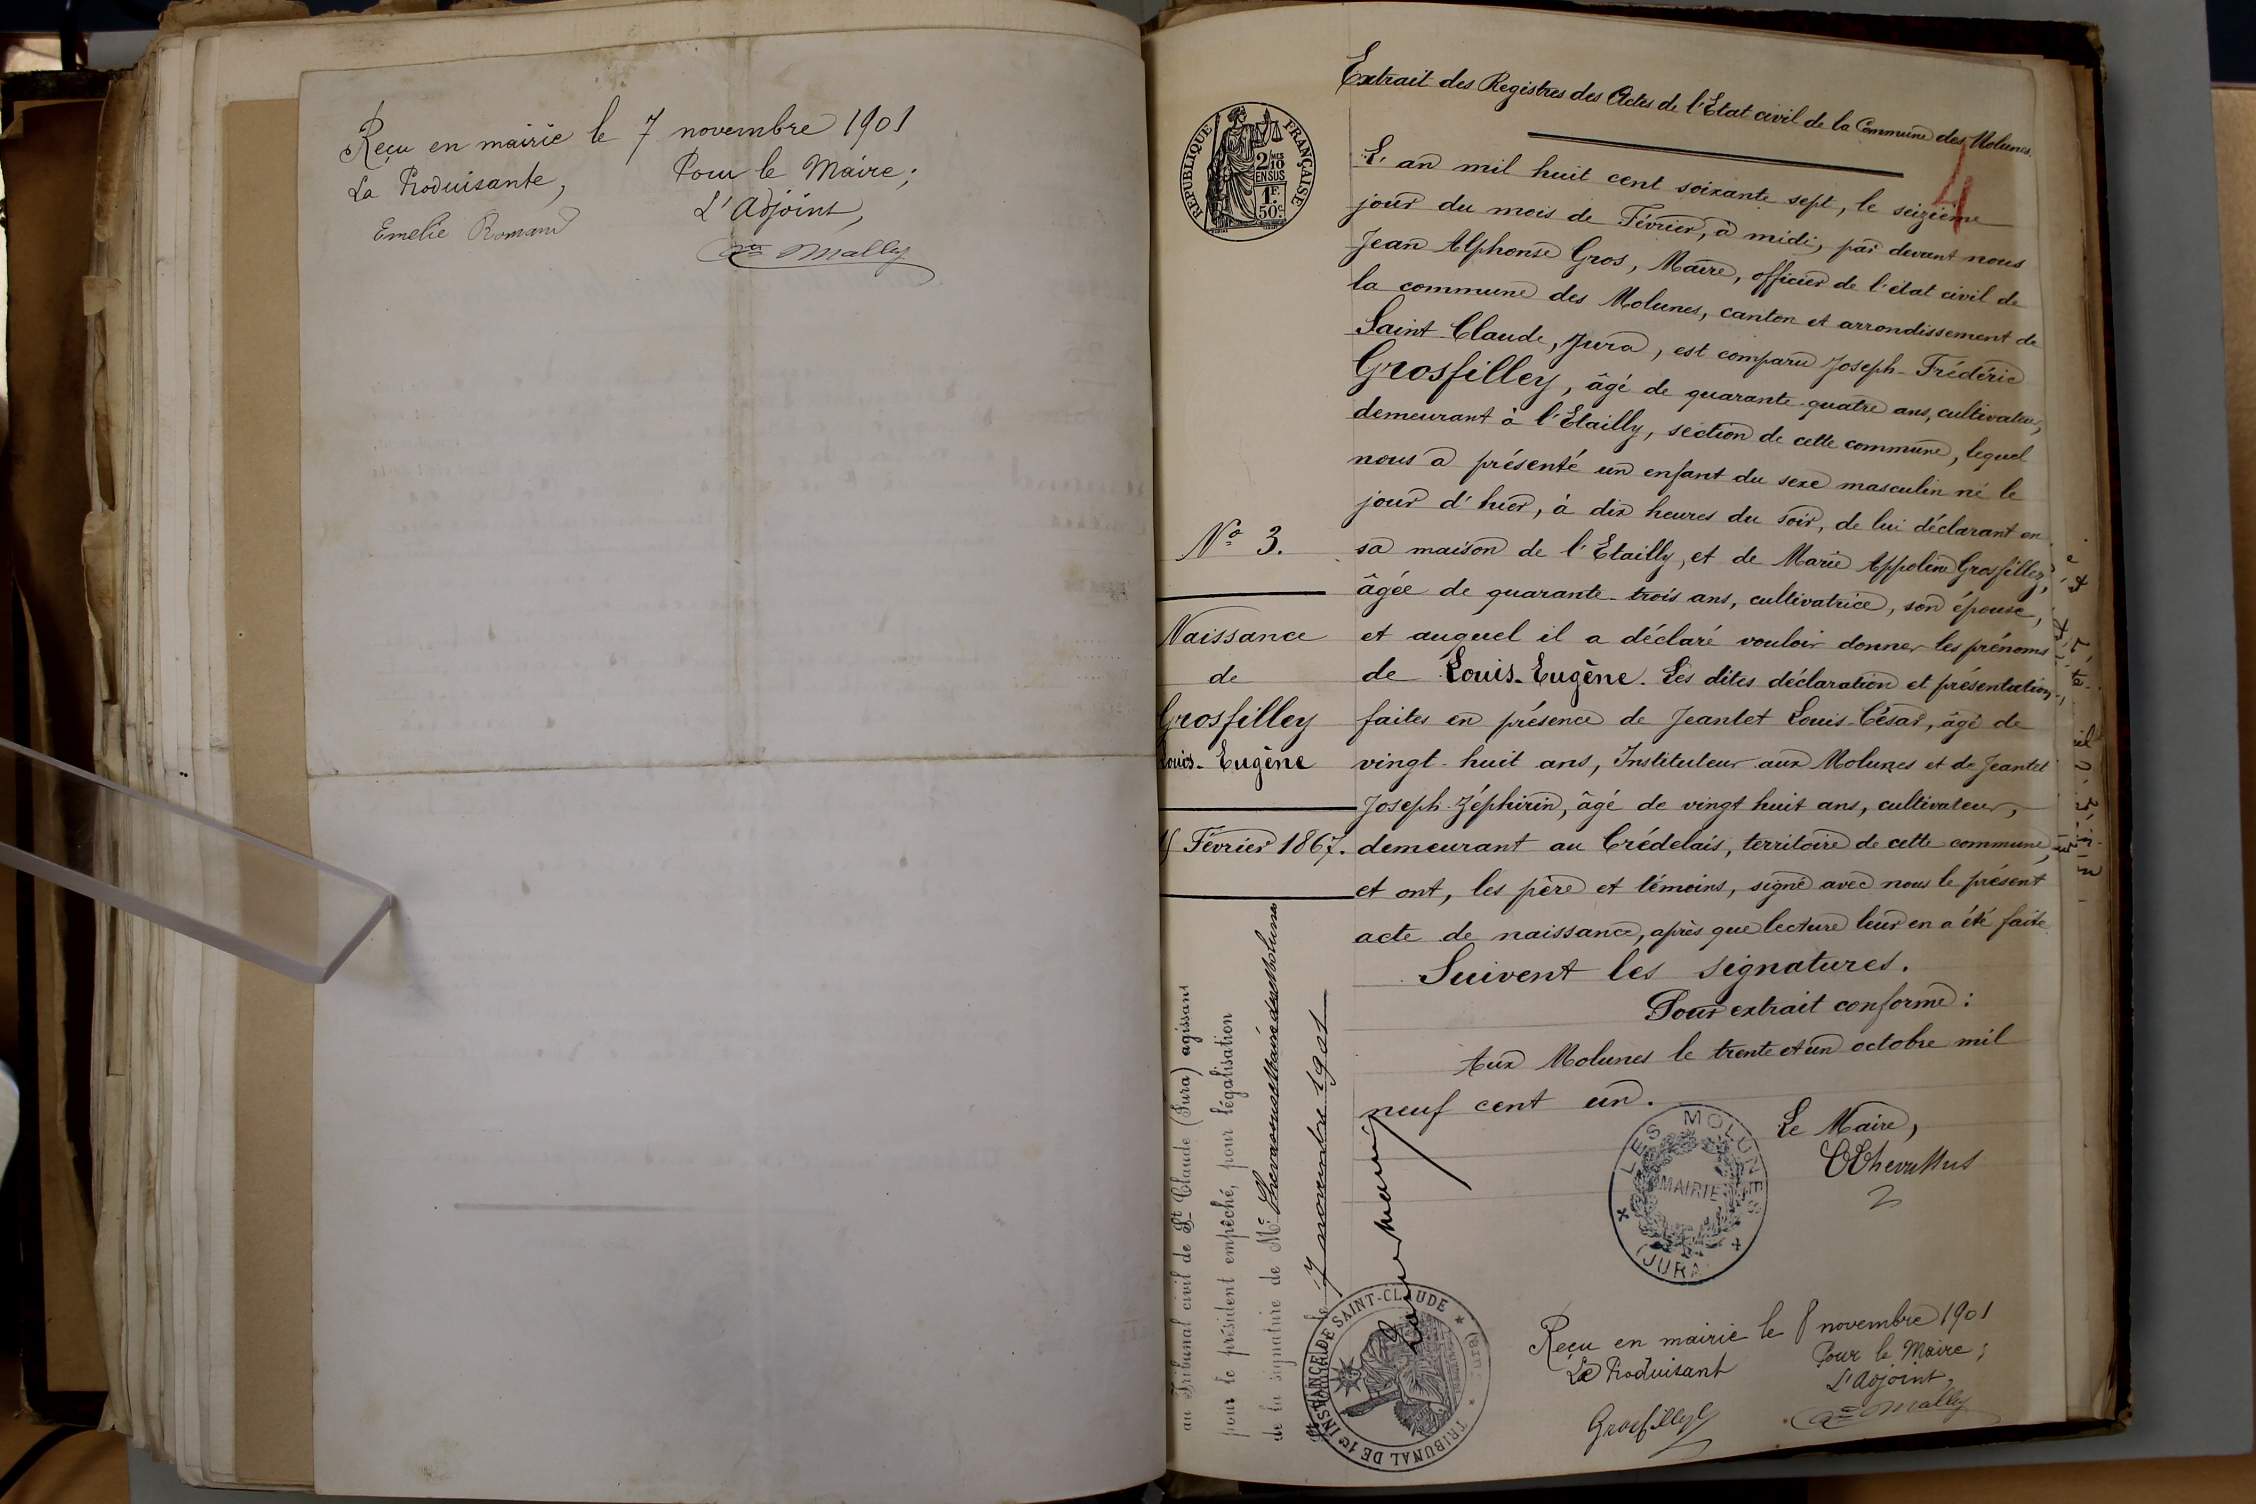 Reçu en mairie le 7 novembre 1901
La Produisante,
Pour le Maire;
L'Adjoint,
Emelie Romand
Mally
Extrait des Registres des Actes de l'Etat civil de la Commune des Molunes.
4
RÉPUBLIQUE FRANÇAISE
2/10 MES
EN SUS
1 F.
50 c.
L'an mil huit cent soixante sept, le seizième
jour du mois de Février, à midi, par devant nous
Jean Alphonse Gros, Maire, officier de l'état civil de
la commune des Molunes, canton et arrondissement de
Saint-Claude, Jura, est comparu Joseph-Frédéric
Grosfilley, âgé de quarante-quatre ans, cultivateur,
demeurant à l'Etailly, section de cette commune, lequel
nous a présenté un enfant du sexe masculin né le
jour d'hier, à dix heures du soir, de lui déclarant en
sa maison de l'Etailly, et de Marie Appoline Grosfilley,
âgée de quarante-trois ans, cultivatrice, son épouse,
et auquel il a déclaré vouloir donner les prénoms
de Louis-Eugène. Les dites déclaration et présentation
faites en présence de Jeantet Louis-César, âgé de
vingt-huit ans, Instituteur aux Molunes et de Jeantet
Joseph-Zéphirin, âgé de vingt huit ans, cultivateur,
demeurant au Crédelais, territoire de cette commune,
et ont, les père et témoins, signé avec nous le présent
acte de naissance, après que lecture leur en a été faite.
Suivent les signatures.
Pour extrait conforme:
Aux Molunes le trente et un octobre mil
neuf cent un.
Le Maire,
No 3.
Naissance
de
Grosfilley
Louis-Eugène
Février 1867.
au Tribunal civil de St Claude (Jura) agissant
pour le président empêché, pour légalisation
de la signature de Mr
7 novembre 1901
LES MOLUNES
MAIRIE
(JURA)
TRIBUNAL DE 1e INSTANCE DE SAINT-CLAUDE
Reçu en mairie le 8 novembre 1901
Le Produisant
Pour le Maire;
L'Adjoint,
Mally